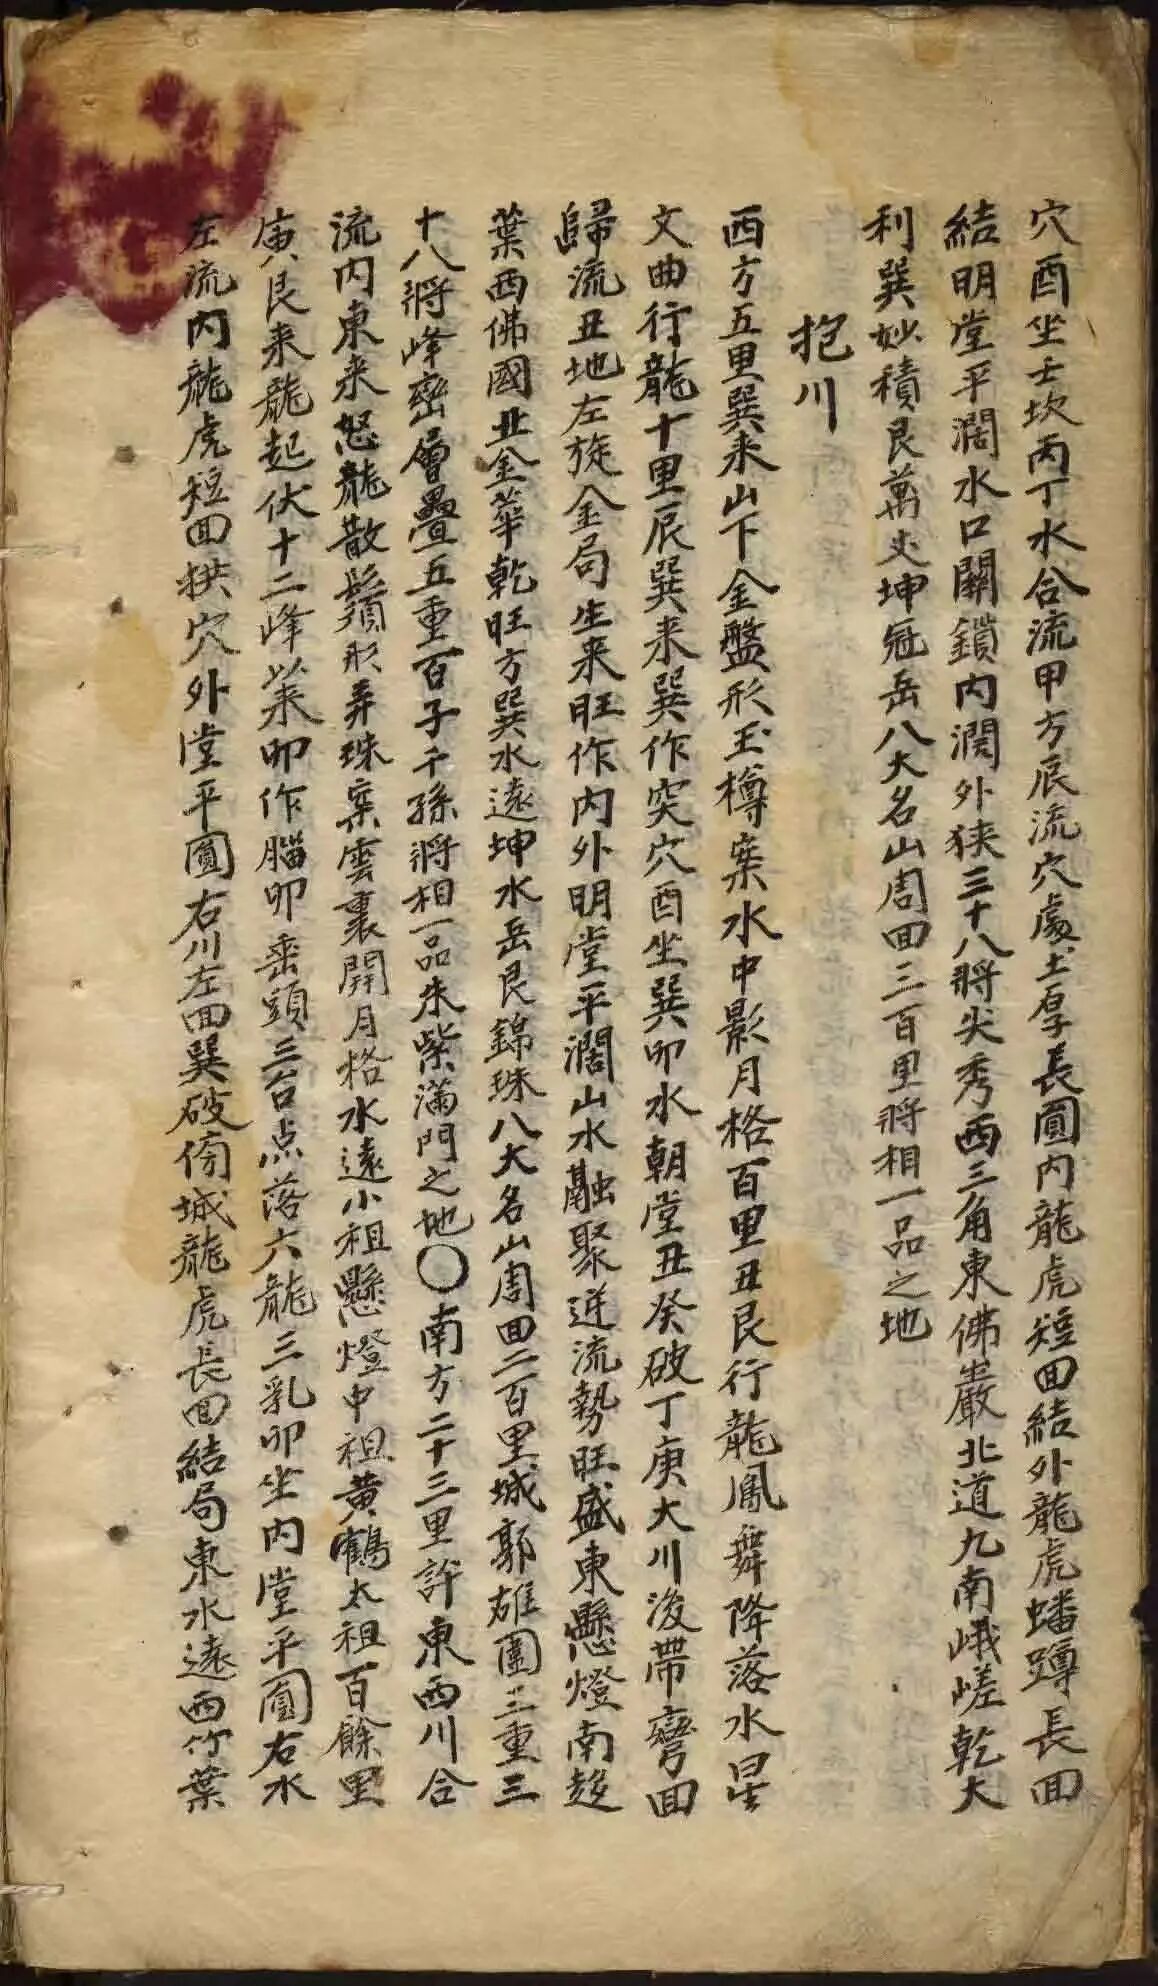 穴酉坐壬坎丙丁水合流甲方辰流穴處土厚長圓内龍虎短回結外龍虎蟠蹲長回
結明堂平濶水口關鎖内濶外狹三十八將尖秀西三角東佛巖北道九南峨嵯乾大
利巽妙積艮萬丈坤冠岳八大名山周回三百里將相一品之地
抱川
西方五里巽来山下金盤形玉樽案水中影月格百里丑艮行龍鳳舞降落水星
文曲行龍十里辰巽来巽作突穴酉坐巽卯水朝堂丑癸破丁庚大川後帶彎回
歸流丑地左旋金局生来旺作内外明堂平濶山水融聚逆流勢旺盛東懸燈南
葉西佛國北金華乾旺方巽水遠坤水岳艮錦珠八大名山周回二百里城郭雄圍三重三
十八將峰巒層疊五重百子千孫將相一品朱紫滿門之地〇南方二十三里許東西川合
流内東来怒龍散鬚形弄珠案雲裏開月格水遠小祖懸燈中祖黄鶴太祖百餘里
庚艮来龍起伏十二峰巒卯作腦卯垂頭三台点落六龍三乳卯坐内堂平圓右水
左流内龍虎短回拱穴外堂平圓右川左回巽破傍城龍虎長回結局東水遠西竹葉